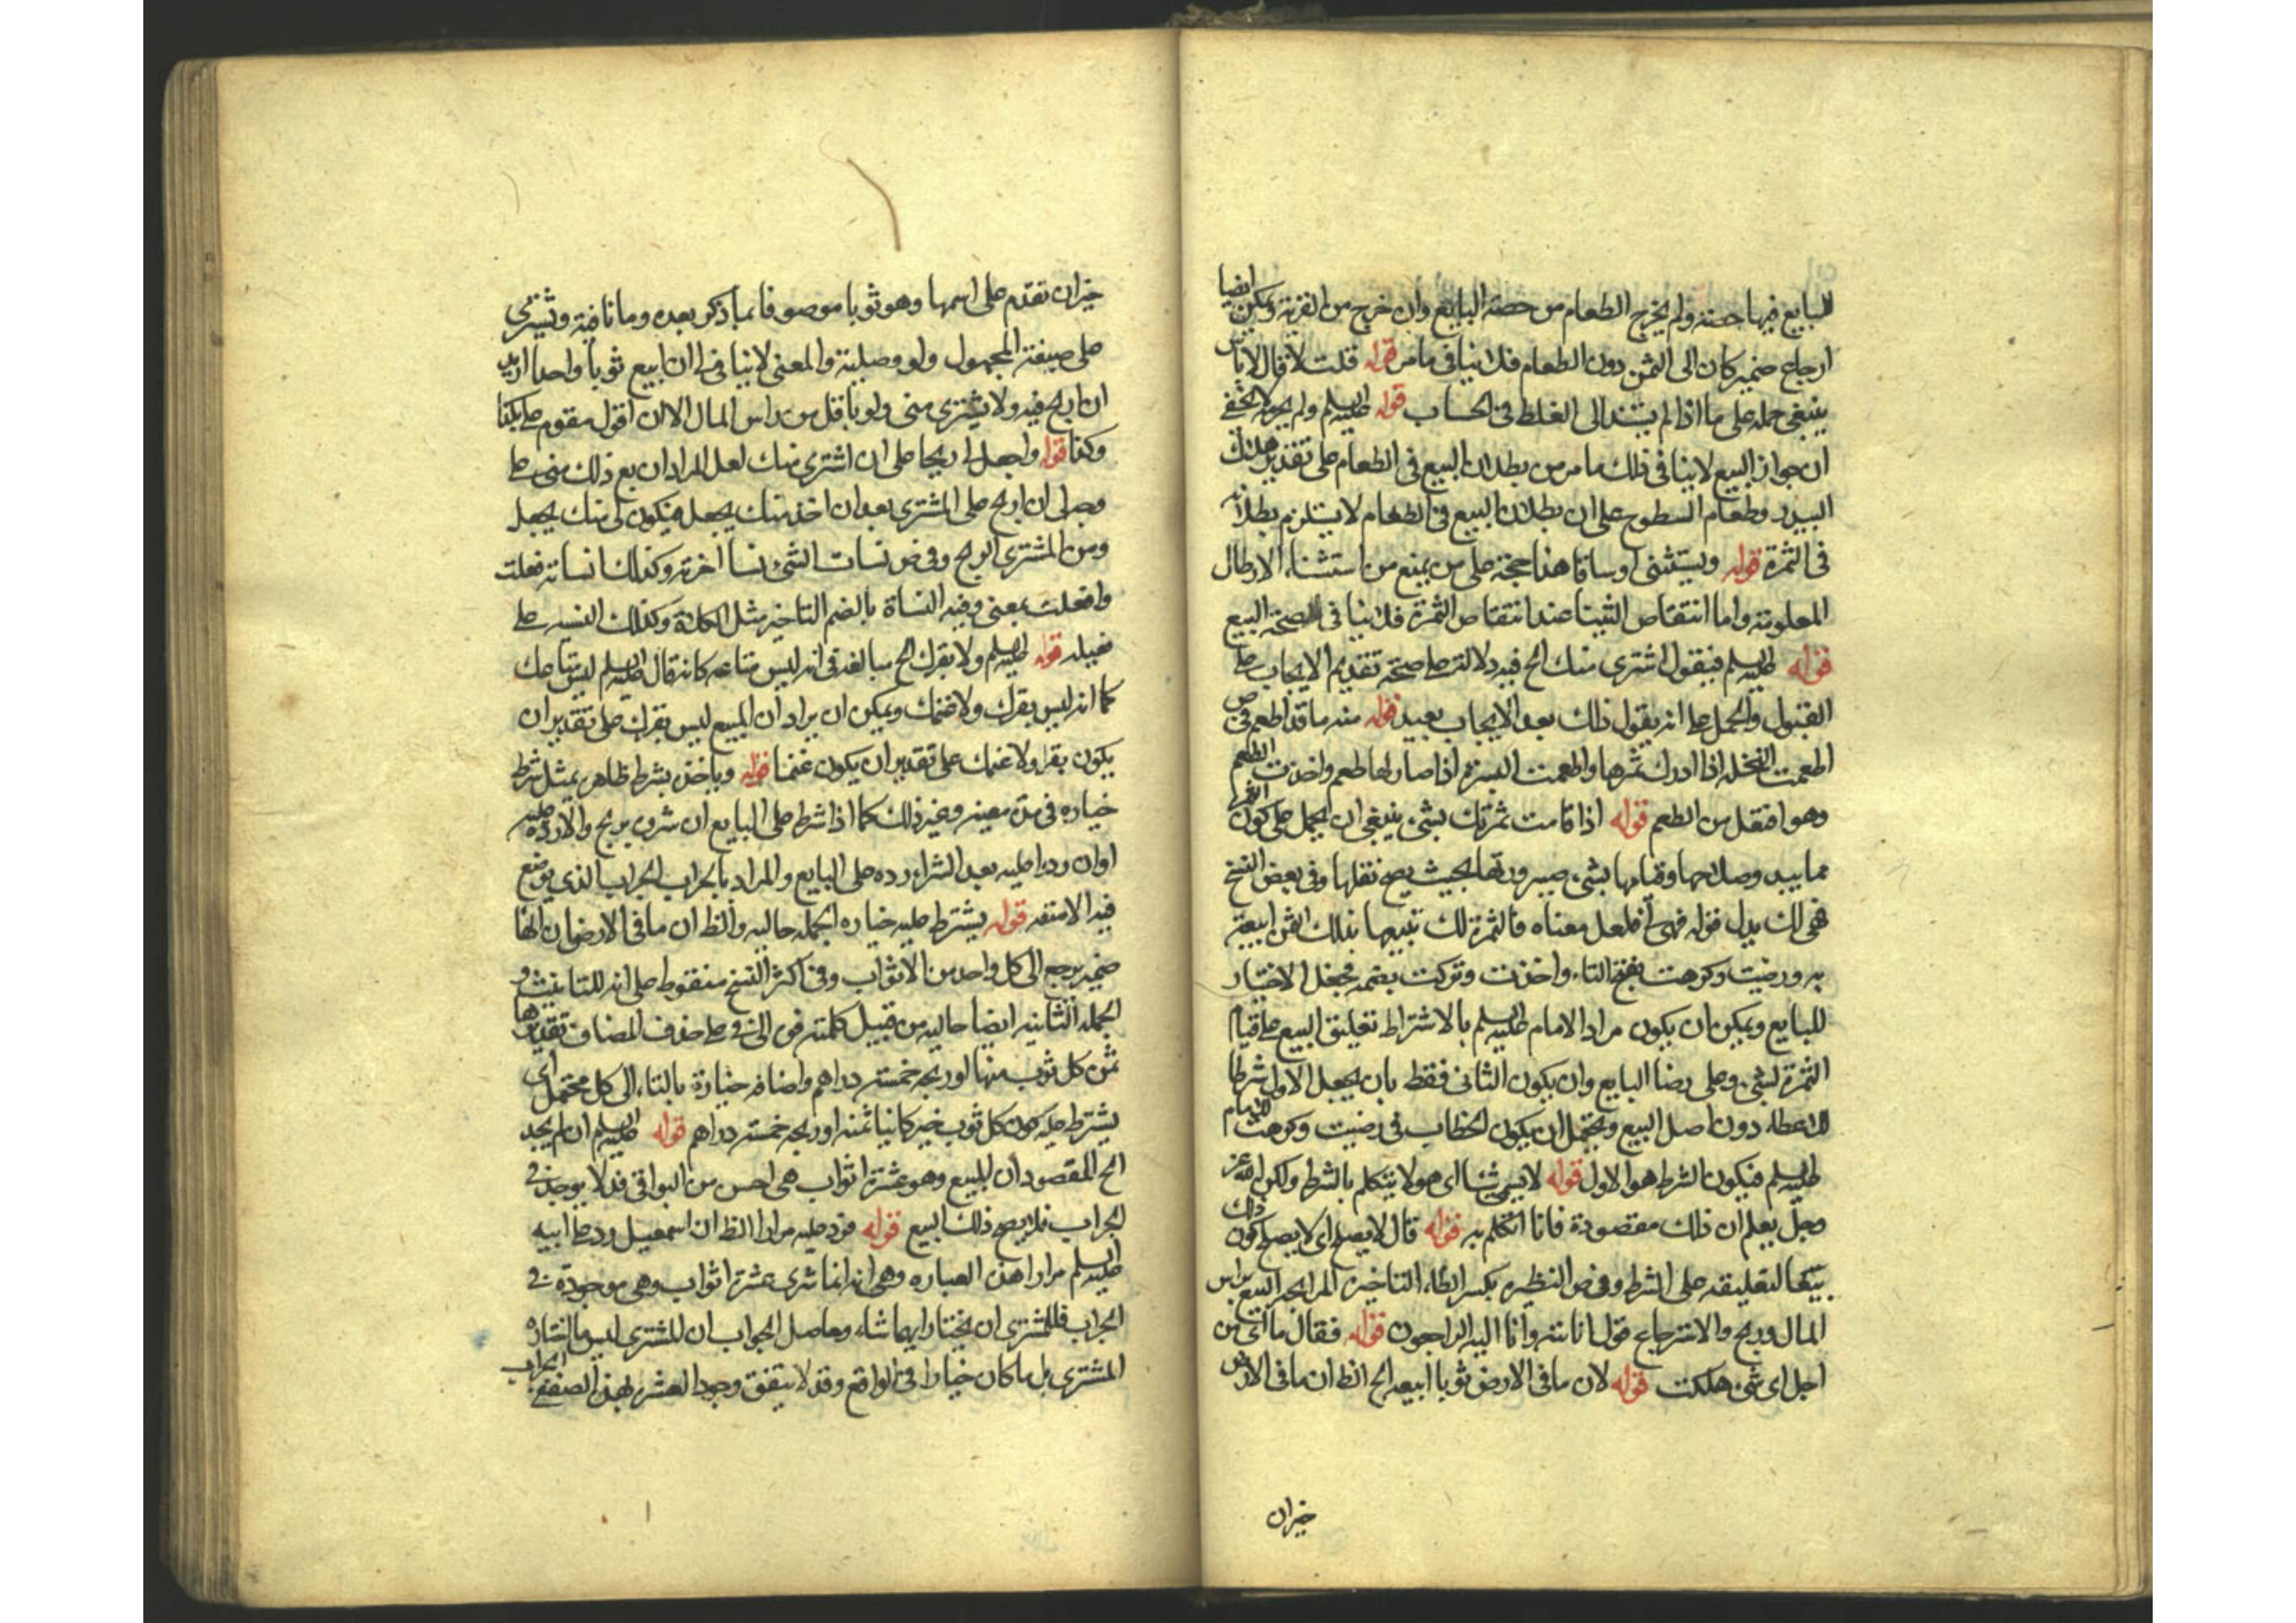 للبايع فيها حصته ولم يخرج الطعام من حصة البايع وان خرج من القرية ويمكن ايضا
ارجاع ضمير كان الى الثمن دون الطعام فلا ينافى ما مر قوله قلت لا قال لا باس
ينبغى حمله على ما اذا لم يستند الى الغلط فى الحساب قوله عليه السلم ولم يجوزه لا يخفى
ان جواز البيع لا ينافى ذلك ما مر من بطلان البيع فى الطعام على تقدير هلاك
البيدر وطعام السطوح على ان بطلان البيع فى الطعام لا يستلزم بطلانه
فى الثمرة قوله ويستثنى اوساقا هذا حجة على من يمنع من استثناء الارطال
المعلومة واما انتقاص الثنيا عند انتقاص الثمرة فلا ينافى صحة البيع
قوله عليه السلم فيقول اشترى منك الخ فيه دلالة على صحة تقديم الايجاب على
القبول والحمل على انه يقول ذلك بعد الايجاب بعيد قوله منه ما قد اطعم فى ض
اطعمت النخلة اذا ادرك ثمرها واطعمت البسرة اذا صار لها طعم واخذت الطعم
وهو افتعل من الطعم قوله اذا قامت ثمرتك بشىء ينبغى ان يحمل على كون الثمرة
مما يبدو صلاحها وقيامها بشىء صيرورتها بحيث يصح نقلها وفى بعض النسخ
هى لك بدل قوله فهى فلعل معناه فالثمرة لك تبيعها بذلك الثمن ابيعه
به ورضيت وكرهت بفتح التاء واخذت وتركت بضمه فجعل الاختيار
للبايع ويمكن ان يكون مراد الامام عليه السلم بالاشتراط تعليق البيع على قيام
الثمرة بشىء وعلى رضا البايع وان يكون الثانى فقط بان يجعل الاول شرطا
للاعطاء دون اصل البيع ويحتمل ان يكون الخطاب فى رضيت وكرهت للامام
عليه السلم فيكون الشرط هو الاول قوله لا يسمى شيئا اى هو لا يتكلم بالشرط ولكن الله عز
وجل يعلم ان ذلك مقصوده فانا اتكلم به قوله قال لا يصلح اى لا يصلح كون ذلك
بيعا لتعليقه على الشرط وفى ض النظرة بكسر الظاء التاخير المرابحة البيع براس
المال وربح والاسترجاع قول انا لله وانا اليه راجعون قوله فقال ما اى من
اجل اى شىء هلكت قوله لان ما فى الارض ثوبا ابيعه الخ الظ ان ما فى الارض
خبران
خبران تقدم على اسمها وهو ثوبا موصوفا بما ذكر بعده وما نافية ويشترى
على صيغة المجهول ولو وصلية والمعنى لا ينافى ان ابيع ثوبا واحدا اريد
ان اربح فيه ولا يشترى منى ولو باقل من راس المال الا ان اقول مقوم على بكذا
وكذا قوله واجعل لى ربحا على ان اشترى منك لعل المراد ان بع ذلك منى على
وصلى ان اربح على المشترى بعد ان اخذ منك بجعل فيكون لى منك بجعل
ومن المشترى الربح وفى ض نسات الشىء نسا اخرته وكذلك انساته فعلت
وافعلت بمعنى وفيه النساة بالضم التاخير مثل الكلاة وكذلك النسية على
فعيلة قوله عليه السلم ولا بقرك الخ مبالغة فى انه ليس متاعه كانه قال عليه السلم ليس متاعك
كما انه ليس بقرك ولا غنمك ويمكن ان يراد ان المبيع ليس بقرك على تقدير ان
يكون بقرا ولا غنمك على تقدير ان يكون غنما قوله وياخذ بشرط ظاهره يمثل شرط
خياره فى مدة معينة وغير ذلك كما اذا شرط على البايع ان شرى بربح والا رده عليه
او ان رد عليه بعد الشراء رده على البايع والمراد بالجراب الجراب الذى يوضع
فيه الامتعة قوله يشترط عليه خياره الجملة حالية والظ ان ما فى الارض ان الها
ضمير يرجع الى كل واحد من الاثواب وفى اكثر النسخ منقوط على انه للتانيث و
الجملة الثانية ايضا حالية من قبيل كلمته فوه الى فى على حذف المضاف تقديرها
ثمن كل ثوب منها او ربحه خمسة دراهم واضافة خيارة بالتاء الى كل محتمل اى
يشترط عليه كون كل ثوب خير كانيا ثمنه او ربحه خمسة دراهم قوله عليه السلم ان لم يجد
الخ المقصود ان المبيع وهو عشرة اثواب هى احسن من البواقى قد لا يوجد فى
الجراب فلا يصح ذلك البيع قوله فرد عليه مرارا الظ ان اسمعيل رد على ابيه
عليه السلم مرارا هذه العبارة وهى انه انما شرى عشرة اثواب وهى موجودة فى
الجراب فللمشترى ان يختار ايهما شاء وحاصل الجواب ان للمشترى ليس ما اختاره
المشترى بل ما كان خيارا فى الواقع وقد لا يتفق وجود العشر بهذه الصفة فى الجراب